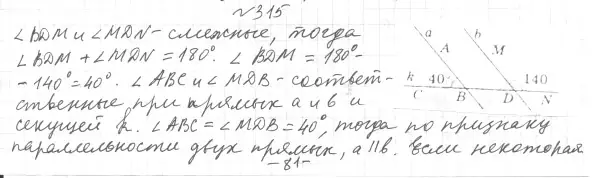 №315
∠BDM и ∠MDN - смежные, тогда
∠BDM + ∠MDN = 180°. ∠BDM = 180° -
- 140° = 40°. ∠ABC и ∠MDB - соответ-
ственные при прямых a и b и
секущей k. ∠ABC = ∠MDB = 40°, тогда по признаку
параллельности двух прямых, a || b. Если некоторая
-81-
a b
A M
k 40 140
C B D N